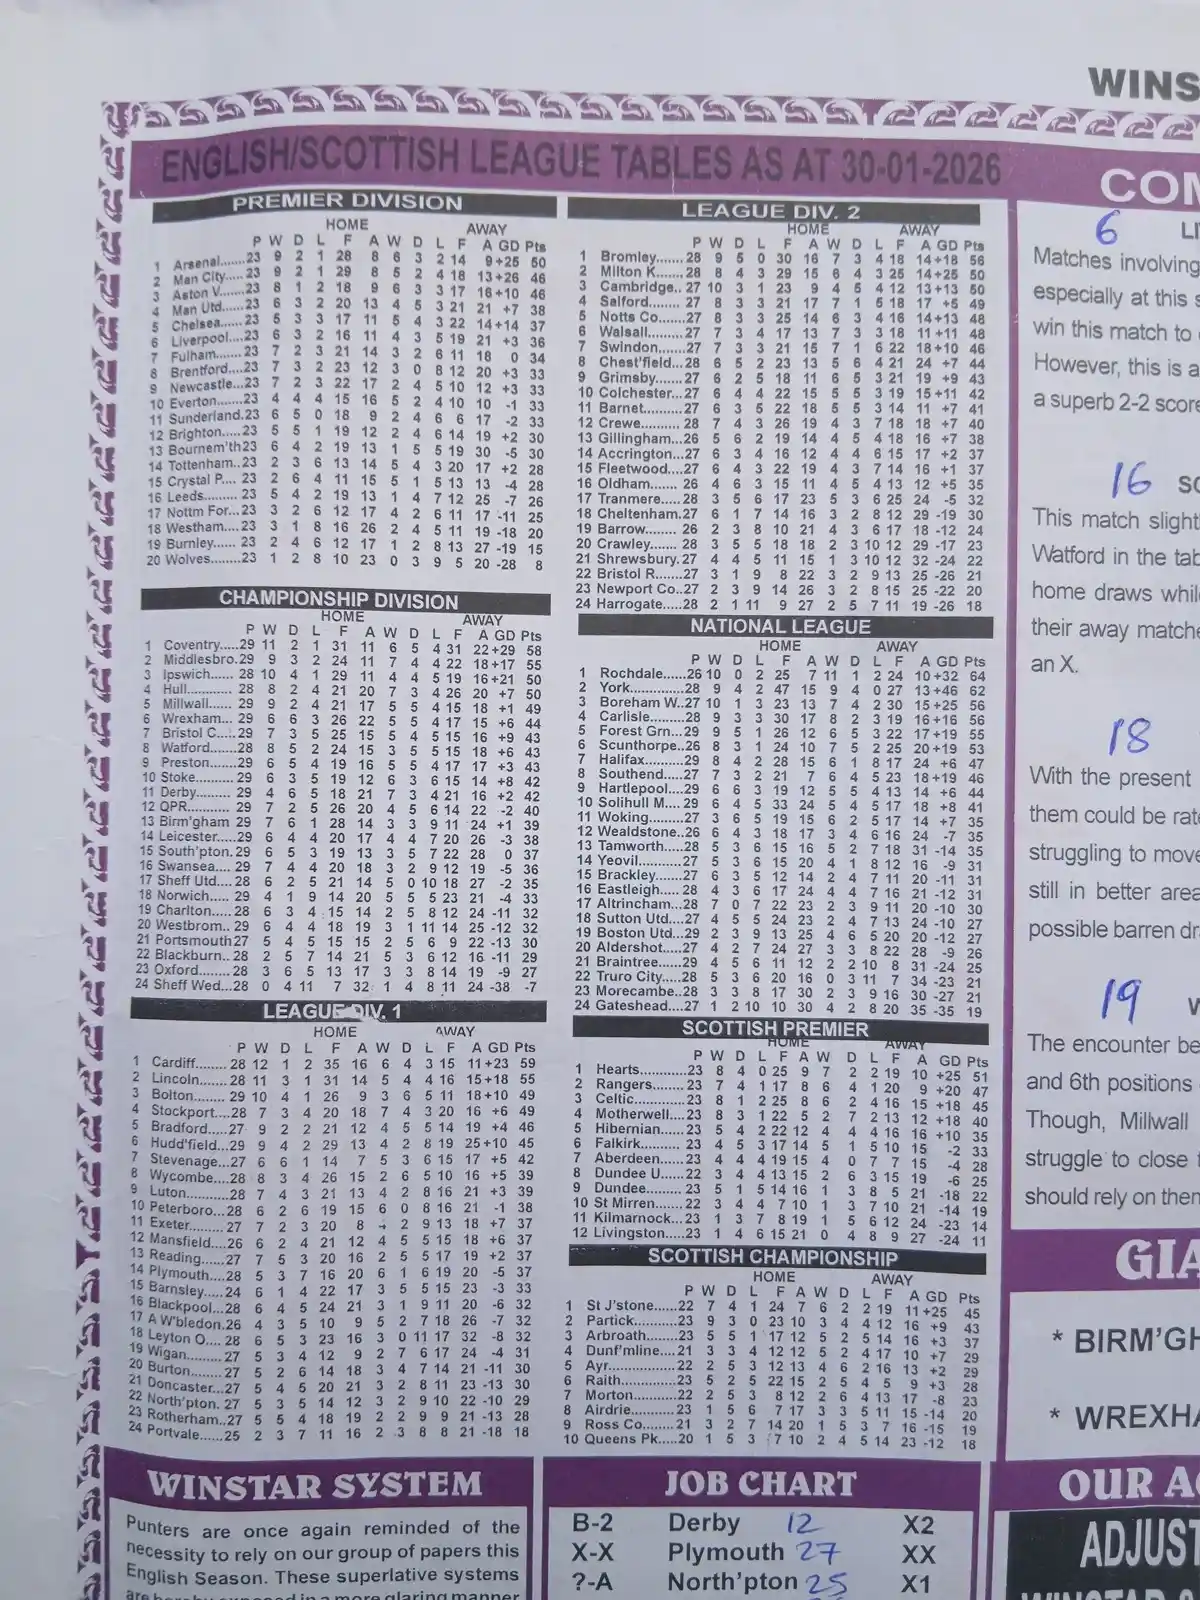 WINS
ENGLISH/SCOTTISH LEAGUE TABLES AS AT 30-01-2026
PREMIER DIVISION
HOME AWAY
P W D L F A W D L F A GD Pts
1 Arsenal.......23 9 2 1 28 8 6 3 2 14 9 +25 50
2 Man City.....23 9 2 1 29 8 5 2 4 18 13 +26 46
3 Aston V.......23 8 1 2 18 9 6 3 3 17 16 +10 46
4 Man Utd......23 6 3 2 20 13 4 5 3 21 21 +7 38
5 Chelsea......23 5 3 3 17 11 5 4 3 22 14 +14 37
6 Liverpool....23 6 3 2 16 11 4 3 5 19 21 +3 36
7 Fulham.......23 7 2 3 21 14 3 2 6 11 18 0 34
8 Brentford....23 7 3 2 23 12 3 0 8 12 20 +3 33
9 Newcastle...23 7 2 3 22 17 2 4 5 10 12 +3 33
10 Everton......23 4 4 4 15 16 5 2 4 10 10 -1 33
11 Sunderland.23 6 5 0 18 9 2 4 6 6 17 -2 33
12 Brighton.....23 5 5 1 19 12 2 4 6 14 19 +2 30
13 Bournem'th23 6 4 2 19 13 1 5 5 19 30 -5 30
14 Tottenham..23 2 3 6 13 14 5 4 3 20 17 +2 28
15 Crystal P.... 23 2 6 4 11 15 5 1 5 13 13 -4 28
16 Leeds......... 23 5 4 2 19 13 1 4 7 12 25 -7 26
17 Nottm For...23 3 2 6 12 17 4 2 6 11 17 -11 25
18 Westham....23 3 1 8 16 26 2 4 5 11 19 -18 20
19 Burnley...... 23 2 4 6 12 17 1 2 8 13 27 -19 15
20 Wolves.......23 1 2 8 10 23 0 3 9 5 20 -28 8
CHAMPIONSHIP DIVISION
HOME AWAY
P W D L F A W D L F A GD Pts
1 Coventry.....29 11 2 1 31 11 6 5 4 31 22 +29 58
2 Middlesbro.29 9 3 2 24 11 7 4 4 22 18 +17 55
3 Ipswich...... 28 10 4 1 29 11 4 4 5 19 16 +21 50
4 Hull............ 28 8 2 4 21 20 7 3 4 26 20 +7 50
5 Millwall...... 29 9 2 4 21 17 5 5 4 15 18 +1 49
6 Wrexham... 29 6 6 3 26 22 5 5 4 17 15 +6 44
7 Bristol C.....29 7 3 5 25 15 5 4 5 15 16 +9 43
8 Watford...... 28 8 5 2 24 15 3 5 5 15 18 +6 43
9 Preston......29 6 5 4 19 16 5 5 4 17 17 +3 43
10 Stoke..........29 6 3 5 19 12 6 3 6 15 14 +8 42
11 Derby......... 29 4 6 5 18 21 7 3 4 21 16 +2 42
12 QPR........... 29 7 2 5 26 20 4 5 6 14 22 -2 40
13 Birm'gham 29 7 6 1 28 14 3 3 9 11 24 +1 39
14 Leicester.....29 6 4 4 20 17 4 4 7 20 26 -3 38
15 South'pton.29 6 5 3 19 13 3 5 7 22 28 0 37
16 Swansea.... 29 7 4 4 20 18 3 2 9 12 19 -5 36
17 Sheff Utd.... 28 6 2 5 21 14 5 0 10 18 27 -2 35
18 Norwich..... 29 4 1 9 14 20 5 5 5 23 21 -4 33
19 Charlton..... 28 6 3 4 15 14 2 5 8 12 24 -11 32
20 Westbrom.. 29 6 4 4 18 19 3 1 11 14 25 -12 32
21 Portsmouth27 5 4 5 15 15 2 5 6 9 22 -13 30
22 Blackburn.. 28 2 5 7 14 21 5 3 6 12 16 -11 29
23 Oxford........ 28 3 6 5 13 17 3 3 8 14 19 -9 27
24 Sheff Wed...28 0 4 11 7 32 1 4 8 11 24 -38 -7
LEAGUE DIV. 1
HOME AWAY
P W D L F A W D L F A GD Pts
1 Cardiff........ 28 12 1 2 35 16 6 4 3 15 11 +23 59
2 Lincoln....... 28 11 3 1 31 14 5 4 4 16 15 +18 55
3 Bolton........ 29 10 4 1 26 9 3 6 5 11 18 +10 49
4 Stockport....28 7 3 4 20 18 7 4 3 20 16 +6 49
5 Bradford.....27 9 2 2 21 12 4 5 5 14 19 +4 46
6 Hudd'field...29 9 4 2 29 13 4 2 8 19 25 +10 45
7 Stevenage...27 6 6 1 14 7 5 3 6 15 17 +5 42
8 Wycombe...28 8 3 4 26 15 2 6 5 10 16 +5 39
9 Luton.......... 28 7 4 3 21 13 4 2 8 16 21 +3 39
10 Peterboro...28 6 2 6 19 15 6 0 8 16 21 -1 38
11 Exeter........ 27 7 2 3 20 8 2 9 13 18 +7 37
12 Mansfield....26 6 2 4 21 12 4 5 5 15 18 +6 37
13 Reading......27 7 5 3 20 16 2 5 5 17 19 +2 37
14 Plymouth....28 5 3 7 16 20 6 1 6 19 20 -5 37
15 Barnsley.....24 6 1 4 22 17 3 5 5 15 23 -3 33
16 Blackpool...28 6 4 5 24 21 3 1 9 11 20 -6 32
17 A W'bledon.26 4 3 5 10 9 5 2 7 18 26 -7 32
18 Leyton O.... 28 6 5 3 23 16 3 0 11 17 32 -8 32
19 Wigan......... 27 5 3 4 12 9 2 7 6 17 24 -4 31
20 Burton........ 27 5 2 6 14 18 3 4 7 14 21 -11 30
21 Doncaster...27 5 4 5 20 21 3 2 8 11 23 -13 30
22 North'pton. 27 5 3 5 14 12 3 2 9 10 22 -10 29
23 Rotherham..27 5 5 4 18 19 2 2 9 9 21 -13 28
24 Portvale......25 2 3 7 11 16 2 3 8 8 21 -18 18
LEAGUE DIV. 2
HOME AWAY
P W D L F A W D L F A GD Pts
1 Bromley...... 28 9 5 0 30 16 7 3 4 18 14 +18 56
2 Milton K...... 28 8 4 3 29 15 6 4 3 25 14 +25 50
3 Cambridge.. 27 10 3 1 23 9 4 5 4 12 13 +13 50
4 Salford........ 27 8 3 3 21 17 7 1 5 18 17 +5 49
5 Notts Co..... 27 8 3 3 25 14 6 3 4 16 14 +13 48
6 Walsall........ 27 7 3 4 17 13 7 3 3 18 11 +11 48
7 Swindon......27 7 3 3 21 15 7 1 6 22 18 +10 46
8 Chest'field...28 6 5 2 23 13 5 6 4 21 24 +7 44
9 Grimsby......27 6 2 5 18 11 6 5 3 21 19 +9 43
10 Colchester...27 6 4 4 22 15 5 5 3 19 15 +11 42
11 Barnet.........27 6 3 5 22 18 5 5 3 14 11 +7 41
12 Crewe.........28 7 4 3 26 19 4 3 7 18 18 +7 40
13 Gillingham...26 5 6 2 19 14 4 5 4 18 16 +7 38
14 Accrington..27 6 3 4 16 12 4 4 6 15 17 +2 37
15 Fleetwood....27 6 4 3 22 19 4 3 7 14 16 +1 37
16 Oldham.......26 4 6 3 15 11 4 5 4 13 12 +5 35
17 Tranmere.... 28 3 5 6 17 23 5 3 6 25 24 -5 32
18 Cheltenham.27 6 1 7 14 16 3 2 8 12 29 -19 30
19 Barrow........26 2 3 8 10 21 4 3 6 17 18 -12 24
20 Crawley.......28 3 5 5 18 18 2 3 10 12 29 -17 23
21 Shrewsbury.27 4 4 5 11 15 1 3 10 12 32 -24 22
22 Bristol R......27 3 1 9 8 22 3 2 9 13 25 -26 21
23 Newport Co..27 2 3 9 14 26 3 2 8 15 25 -22 20
24 Harrogate....28 2 1 11 9 27 2 5 7 11 19 -26 18
NATIONAL LEAGUE
HOME AWAY
P W D L F A W D L F A GD Pts
1 Rochdale.....26 10 0 2 25 7 11 1 2 24 10 +32 64
2 York..............28 9 4 2 47 15 9 4 0 27 13 +46 62
3 Boreham W..27 10 1 3 23 13 7 4 2 30 15 +25 56
4 Carlisle.........28 9 3 3 30 17 8 2 3 19 16 +16 56
5 Forest Grn...29 9 5 1 26 12 6 5 3 22 17 +19 55
6 Scunthorpe..26 8 3 1 24 10 7 5 2 25 20 +19 53
7 Halifax.........29 8 4 2 28 15 6 1 8 17 24 +6 47
8 Southend.....27 7 3 2 21 7 6 4 5 23 18 +19 46
9 Hartlepool....29 6 6 3 19 12 5 5 4 13 14 +6 44
10 Solihull M.... 29 6 4 5 33 24 5 4 5 17 18 +8 41
11 Woking........27 3 6 5 19 15 6 2 5 17 14 +7 35
12 Wealdstone..26 6 4 3 18 17 3 4 6 16 24 -7 35
13 Tamworth.....28 5 3 6 15 16 5 2 7 18 31 -14 35
14 Yeovil...........27 5 3 6 15 20 4 1 8 12 16 -9 31
15 Brackley......27 6 3 5 12 14 2 4 7 11 20 -11 31
16 Eastleigh.....28 4 3 6 17 24 4 4 7 16 21 -12 31
17 Altrincham...28 7 0 7 22 23 2 3 9 11 20 -10 30
18 Sutton Utd...27 4 5 5 24 23 2 4 7 13 24 -10 27
19 Boston Utd...29 2 3 9 13 25 4 6 5 20 20 -12 27
20 Aldershot.....27 4 2 7 24 27 3 3 8 22 28 -9 26
21 Braintree......29 4 5 6 11 12 2 2 10 8 31 -24 25
22 Truro City.....28 5 3 6 20 16 0 3 11 7 34 -23 21
23 Morecambe..28 3 3 8 17 30 2 3 9 16 30 -27 21
24 Gateshead....27 1 2 10 10 30 4 2 8 20 35 -35 19
SCOTTISH PREMIER
HOME AWAY
P W D L F A W D L F A GD Pts
1 Hearts.........23 8 4 0 25 9 7 2 2 19 10 +25 51
2 Rangers......23 7 4 1 17 8 6 4 1 20 9 +20 47
3 Celtic..........23 8 1 2 25 8 6 2 4 16 15 +18 45
4 Motherwell..23 8 3 1 22 5 2 7 2 13 12 +18 40
5 Hibernian....23 5 4 2 22 12 4 4 4 16 16 +10 35
6 Falkirk........ 23 4 5 3 17 14 5 1 5 10 15 -2 33
7 Aberdeen....23 4 4 4 19 15 4 0 7 7 15 -4 28
8 Dundee U....22 3 4 4 13 15 2 6 3 15 19 -6 25
9 Dundee.......23 5 1 5 14 16 1 3 8 5 21 -18 22
10 St Mirren.....22 3 4 4 7 10 1 3 7 10 21 -14 19
11 Kilmarnock...23 1 3 7 8 19 1 5 6 12 24 -23 14
12 Livingston....23 1 4 6 15 21 0 4 8 9 27 -24 11
SCOTTISH CHAMPIONSHIP
HOME AWAY
P W D L F A W D L F A GD Pts
1 St J'stone......22 7 4 1 24 7 6 2 2 19 11 +25 45
2 Partick.........23 9 3 0 23 10 3 4 4 12 16 +9 43
3 Arbroath......23 5 5 1 17 12 5 2 5 14 16 +3 37
4 Dunf'mline....21 3 3 4 12 12 5 2 4 17 10 +7 29
5 Ayr...............22 2 5 3 12 13 4 6 2 16 13 +2 29
6 Raith............23 5 2 5 22 15 2 5 4 5 9 +3 28
7 Morton.........22 2 5 3 8 12 2 6 4 13 17 -8 23
8 Airdrie..........23 1 5 6 7 17 3 3 5 11 15 -14 20
9 Ross Co.......21 3 2 7 14 20 1 5 3 7 16 -15 19
10 Queens Pk....20 1 5 3 7 10 2 4 5 14 23 -12 18
COM
6 LI
Matches involving
especially at this s
win this match to
However, this is a
a superb 2-2 score
16 SO
This match slight
Watford in the tab
home draws while
their away matche
an X.
18
With the present
them could be rate
struggling to move
still in better area
possible barren dr
19
The encounter be
and 6th positions
Though, Millwall
struggle to close
should rely on them
GIA
* BIRM'GH
* WREXHA
WINSTAR SYSTEM
Punters are once again reminded of the
necessity to rely on our group of papers this
English Season. These superlative systems
are exposed in a more glaring manner
JOB CHART
B-2 Derby 12 X2
X-X Plymouth 27 XX
?-A North'pton 25 X1
OUR A
ADJUST